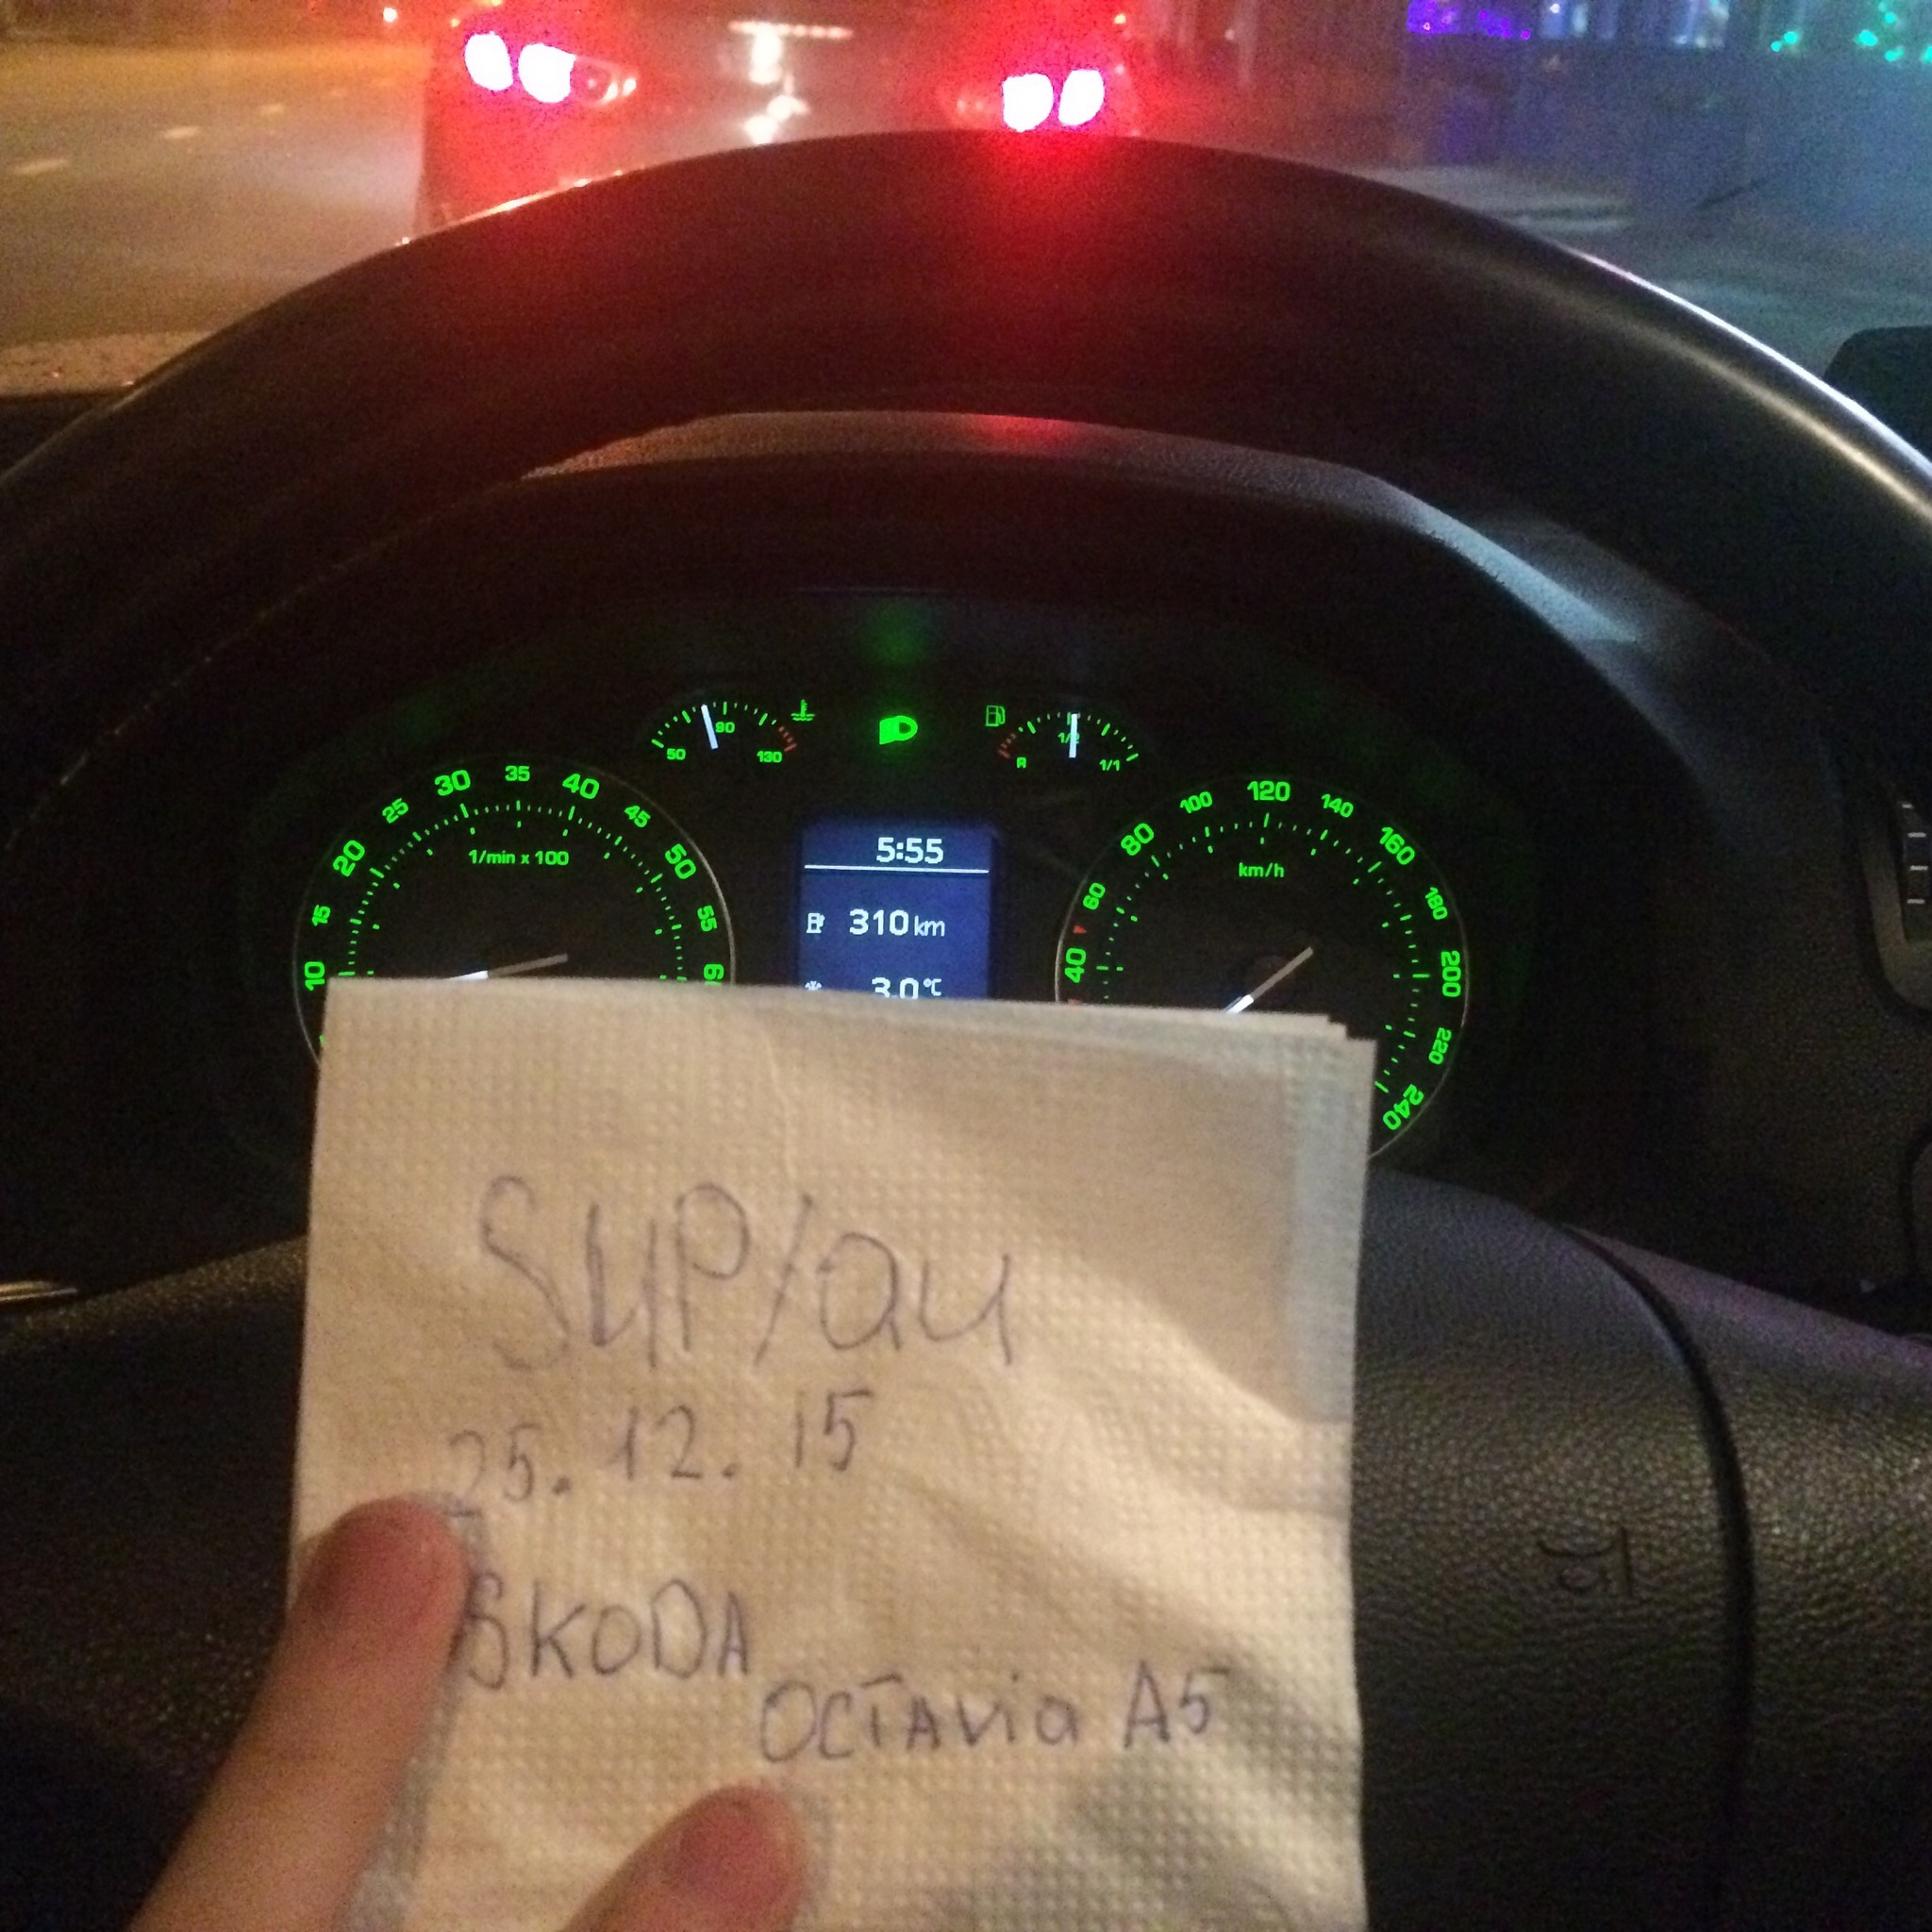 50 90 130
R 1/2 1/1
10 15 20 25 30 35 40 45 50 55 60
1/min x 100
5:55
310 km
3.0 °C
40 60 80 100 120 140 160 180 200 220 240
km/h
SUP/au
25. 12. 15
SKODA
OCTAvia A5